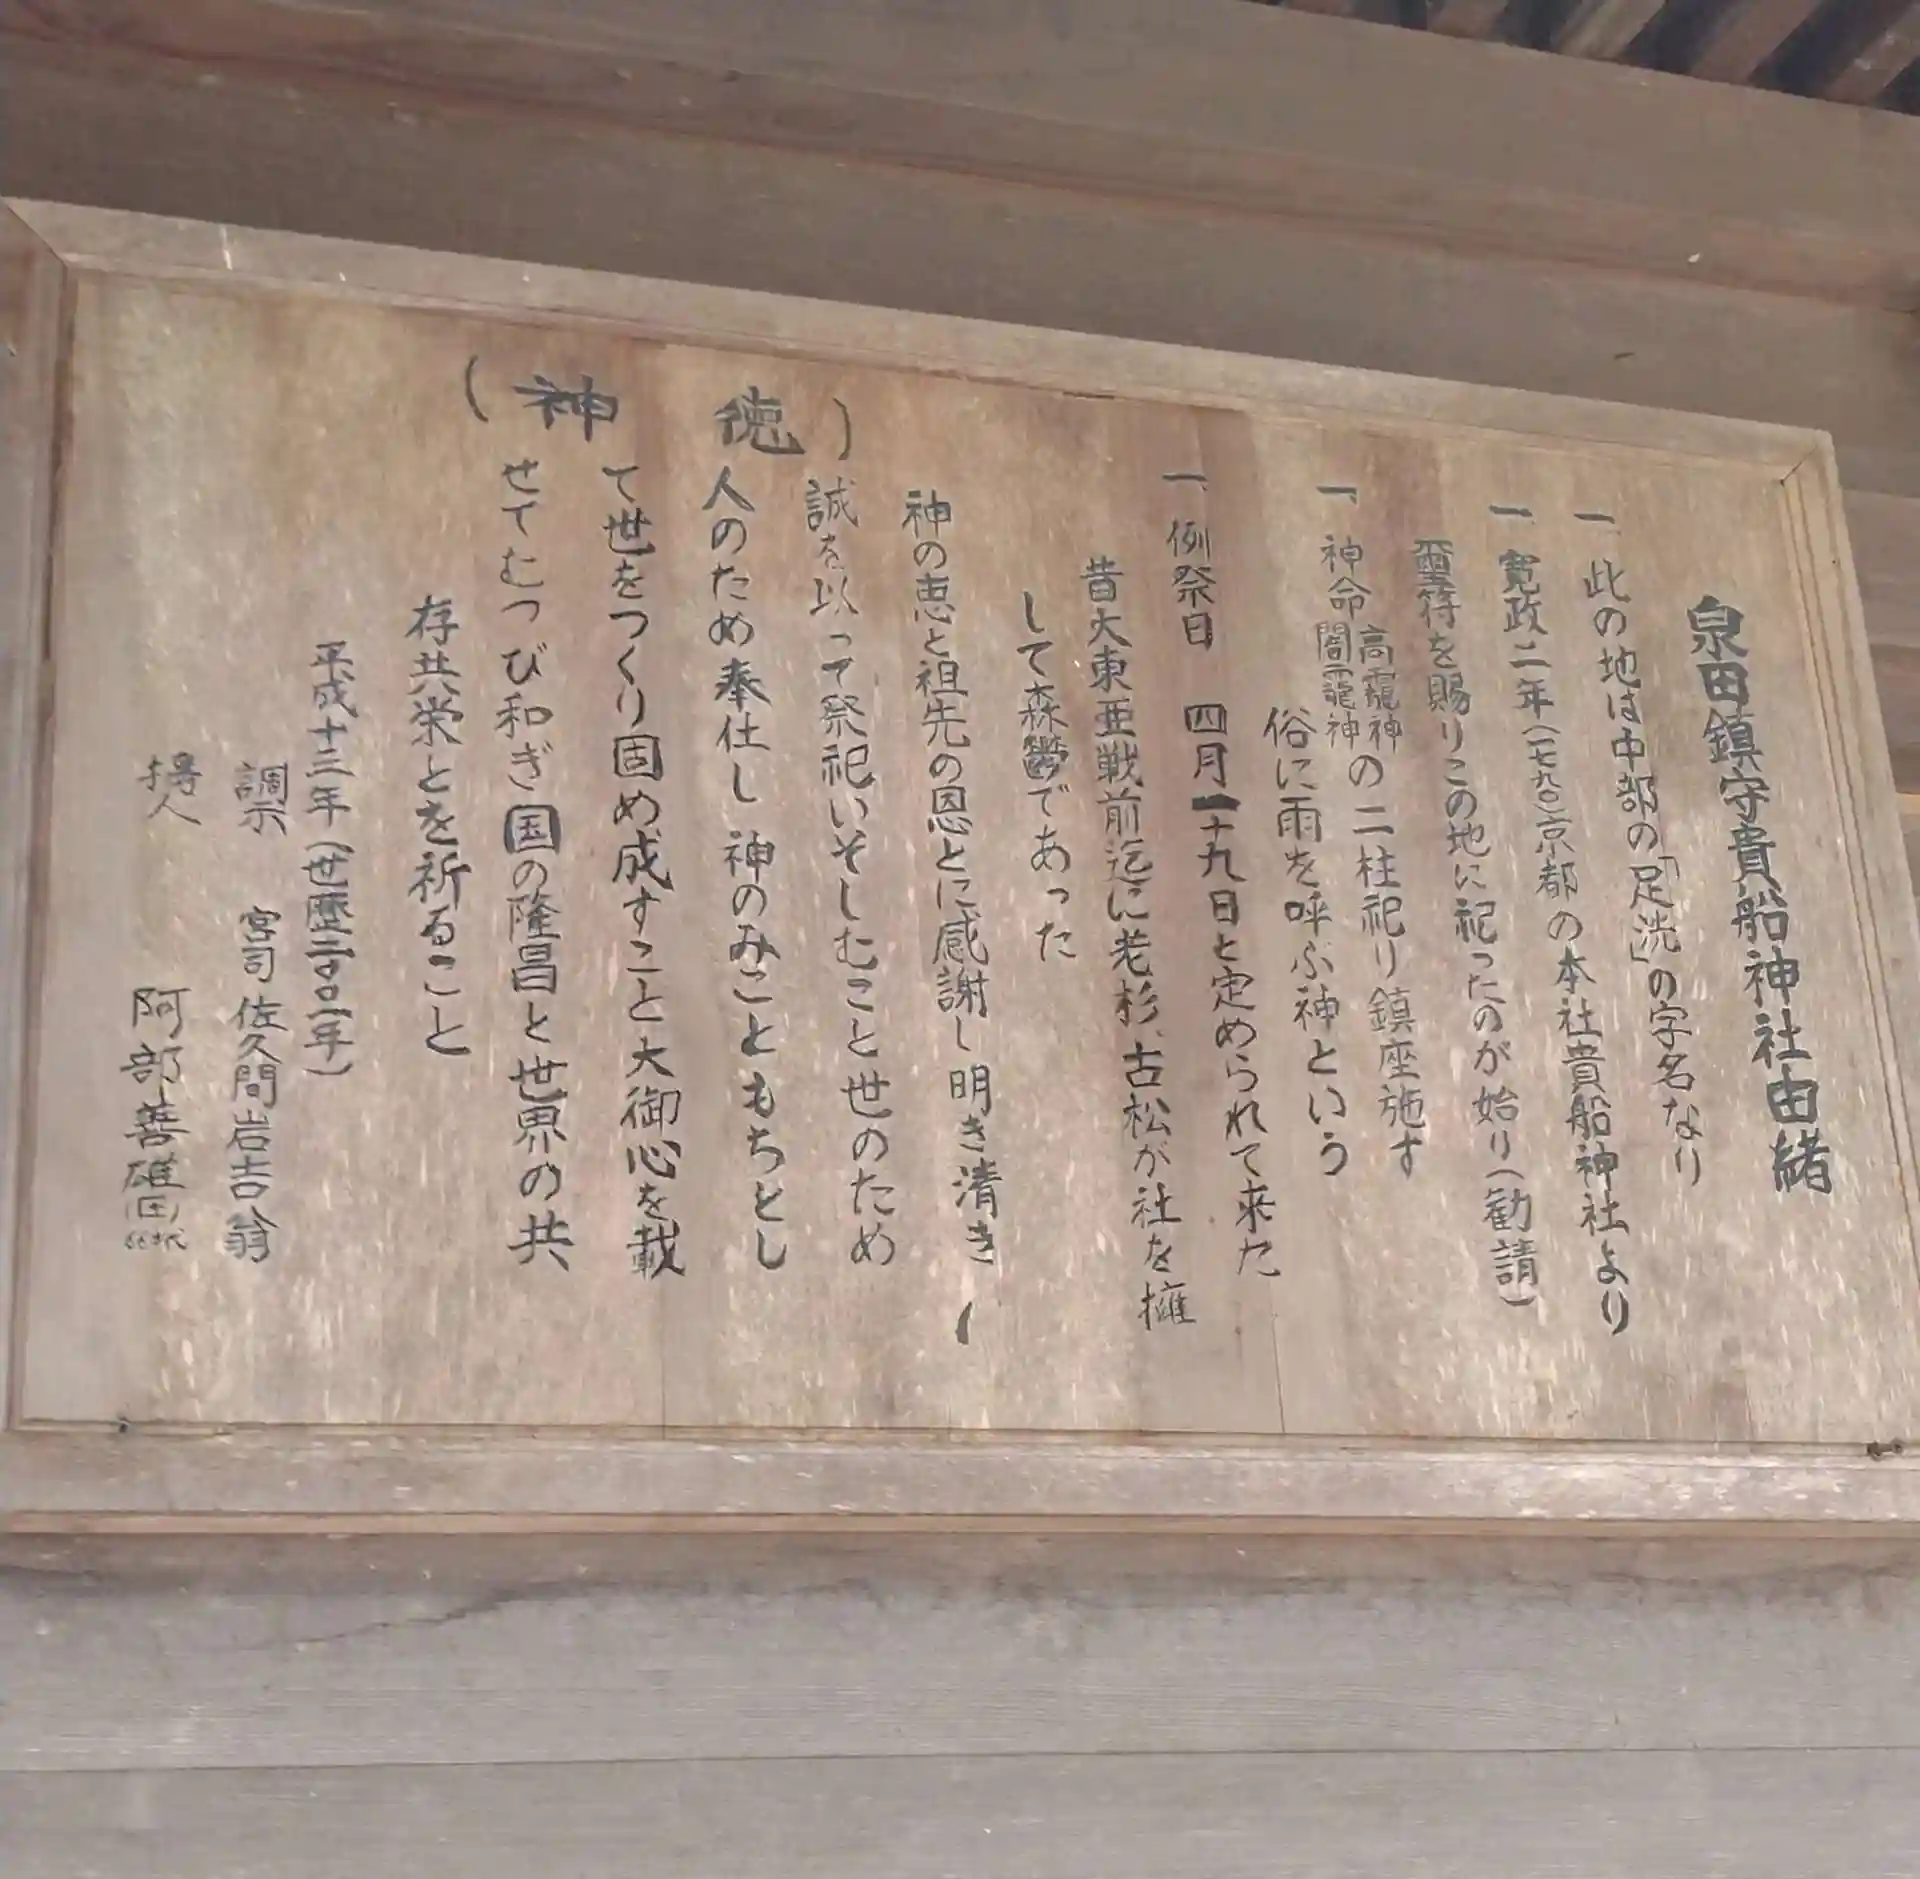 泉田鎮守貴船神社由緒
一、此の地は中部の「足洗」の字名なり
一、寛政二年(一七九〇)京都の本社貴船神社より
璽符を賜りこの地に祀ったのが始り(勧請)
一、神命 高龗神 闇龗神 の二柱祀り鎮座施す
俗に雨を呼ぶ神という
一、例祭日 四月十九日と定められて来た
昔大東亜戦前迄に老杉、古松が社を擁
して森鬱であった
神の恵と祖先の恩とに感謝し明き清き
(神徳)
誠を以って祭祀いそしむこと世のため
人のため奉仕し神のみこともちとし
て世をつくり固め成すこと大御心を載
せてむつび和ぎ国の隆昌と世界の共
存共栄とを祈ること
平成十三年(世歴二〇〇一年)
宮司 佐久間岩吉翁
阿部善雄